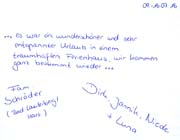 09.-16.07.16
... es war ein wunderschöner und sehr
entspannter Urlaub in einem
traumhaften Ferienhaus, wir kommen
ganz bestimmt wieder ...
Fam
Schröder
(Bad
Dirk, Jannik, Nicole
+ Luna